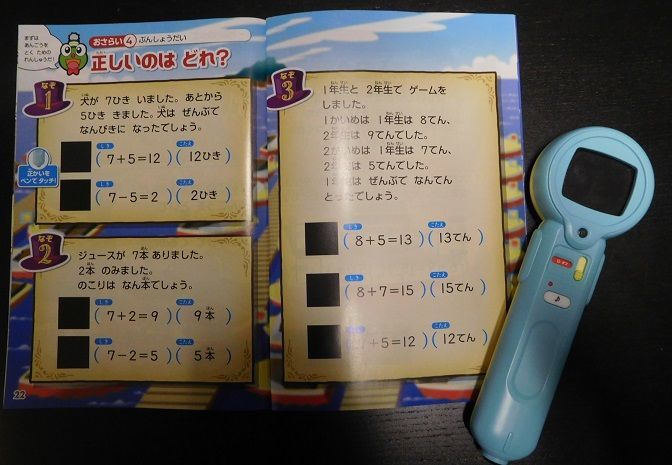 まずは
あんごうを
とく ための
れんしゅうだ！
おさらい ④ ぶんしょうだい
正しいのは どれ？
なぞ
1
犬が 7ひき いました。あとから
5ひき きました。犬は ぜんぶで
なんびきに なったでしょう。
しき こたえ
(7＋5＝12)(12ひき)
正かいを
ペンで タッチ！
しき こたえ
(7－5＝2)(2ひき)
なぞ
2
ジュースが 7本 ありました。
2本 のみました。
のこりは なん本でしょう。
しき こたえ
(7＋2＝9)(9本)
しき こたえ
(7－2＝5)(5本)
22
なぞ
3
1年生と 2年生で ゲームを
しました。
1かいめは 1年生は 8てん、
2年生は 9てんでした。
2かいめは 1年生は 7てん、
2年生は 5てんでした。
1年生は ぜんぶで なんてん
とったでしょう。
しき こたえ
(8＋5＝13)(13てん)
しき こたえ
(8＋7＝15)(15てん)
しき こたえ
＋5＝12)(12てん)